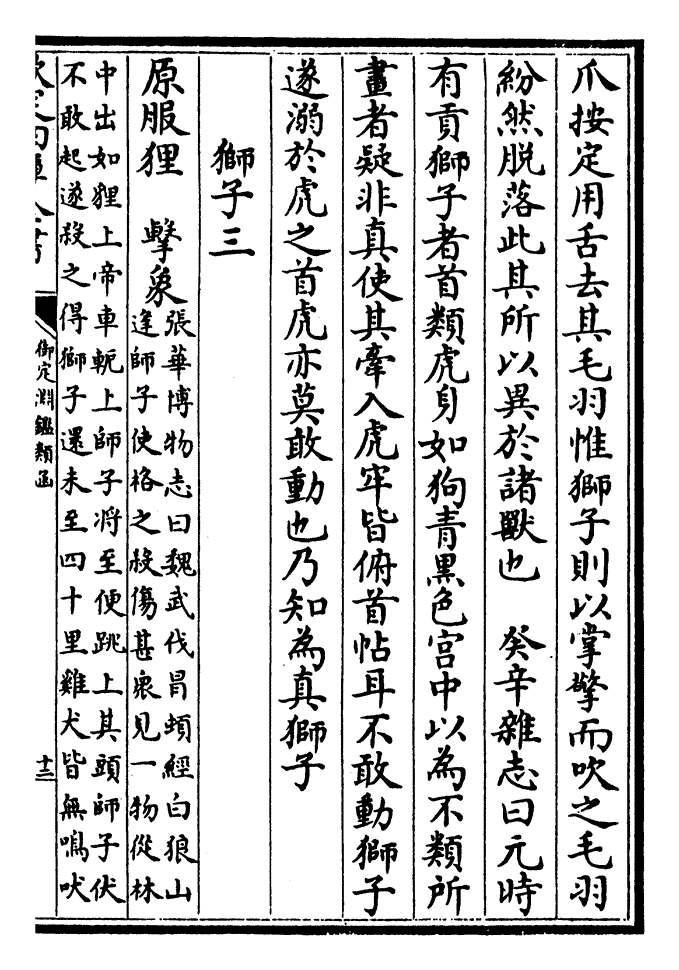 爪按定用舌去其毛羽惟獅子則以掌擎而吹之毛羽
紛然脱落此其所以異於諸獸也　癸辛雜志曰元時
有貢獅子者首類虎身如狗青黑色宫中以為不類所
畫者疑非真使其牽入虎牢皆俯首帖耳不敢動獅子
遂溺於虎之首虎亦莫敢動也乃知為真獅子
獅子三
原服狸　擊象
張華博物志曰魏武伐冒頓經白狼山
逢師子使格之殺傷甚衆見一物從林
中出如狸上帝車軛上師子将至便跳上其頭師子伏
不敢起遂殺之得獅子還未至四十里雞犬皆無鳴吠
欽定四庫全書
御定淵鑑類函
十三